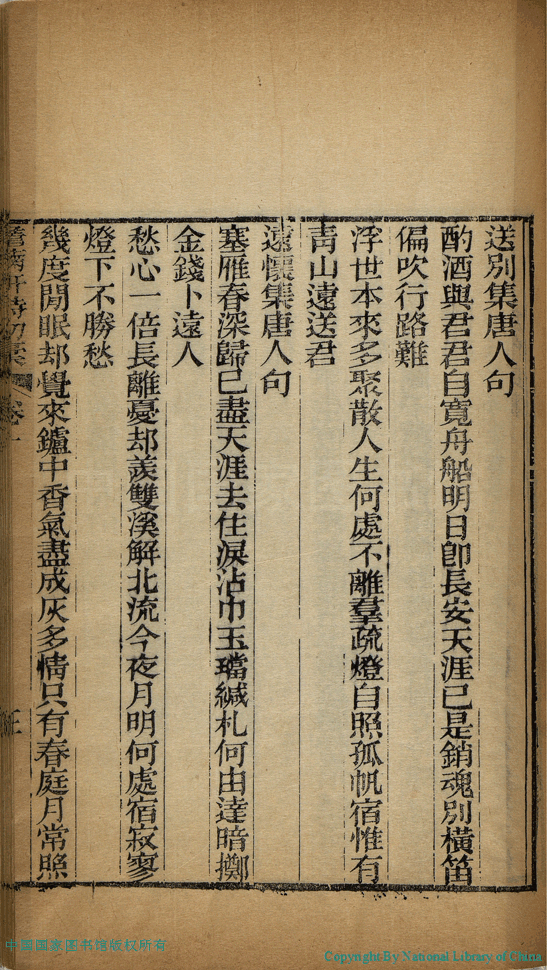 送別集唐人句
酌酒與君君自寛舟船明日卽長安天涯已是銷魂別橫笛
偏吹行路難
浮世本來多聚散人生何處不離羣疏燈自照孤帆宿惟有
靑山遠送君
遠懷集唐人句
塞雁春深歸已盡天涯去住淚沾巾玉璫緘札何由達暗擲
金錢卜遠人
愁心一倍長離憂却羨雙溪解北流今夜月明何處宿寂寥
燈下不勝愁
幾度閒眠却覺來鑪中香氣盡成灰多情只有春庭月常照
卷一
中国国家图书馆版权所有
Copyright By National Library of China